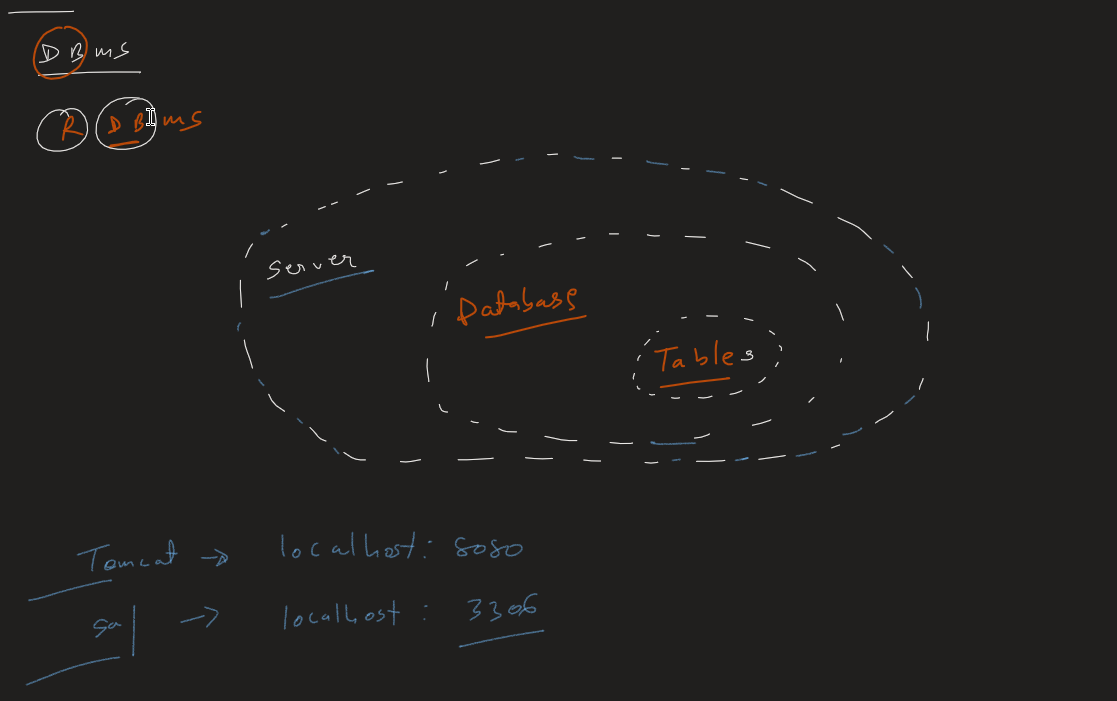 DBMS
R DBMS
Server
Database
Tables
Tomcat → localhost: 8080
sql → localhost: 3306